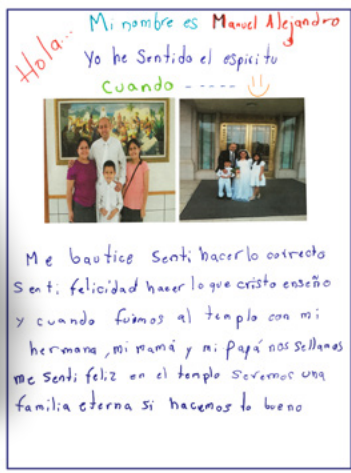 Hola... Mi nombre es Manuel Alejandro
Yo he Sentido el espiritu
Cuando -----
Me bautice Senti hacer lo correcto
Senti felicidad hacer lo que cristo enseño
y cuando fuimos al templo con mi
hermana, mi mamá y mi papá nos sellamos
me Senti feliz en el templo Seremos una
familia eterna si hacemos lo bueno